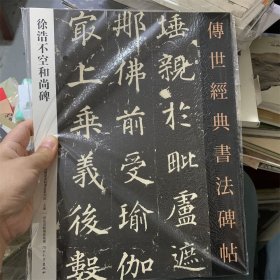 傳世經典書法碑帖
徐浩不空和尚碑
埵親於毗盧遮
那佛前受瑜
最上乘義後數